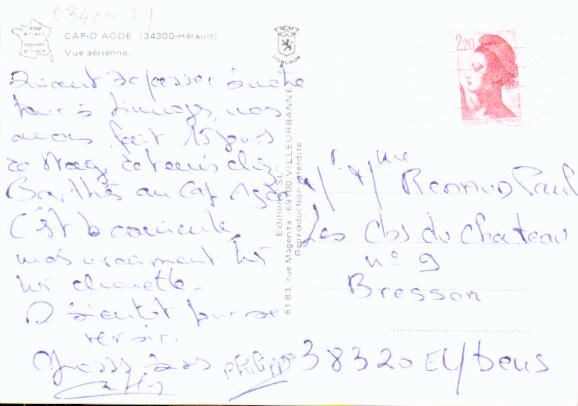 CAP-D'AGDE (34300-Hérault)
Vue aérienne.
LYONCOLOR
2,20
avons fait 15 jours
de stage de tennis chez
Barthès au Cap Agde
C'est la canicule
mais vraiment très
très chouette.
A bientôt pour se
revoir.
Gross bises Philippe
Editions "SL"
81-83, rue Magenta - 69100 VILLEURBANNE
Reproduction interdite
Mr Mme Paul
Les Clos du Chateau
n° 9
Bresson
38320 Eybens